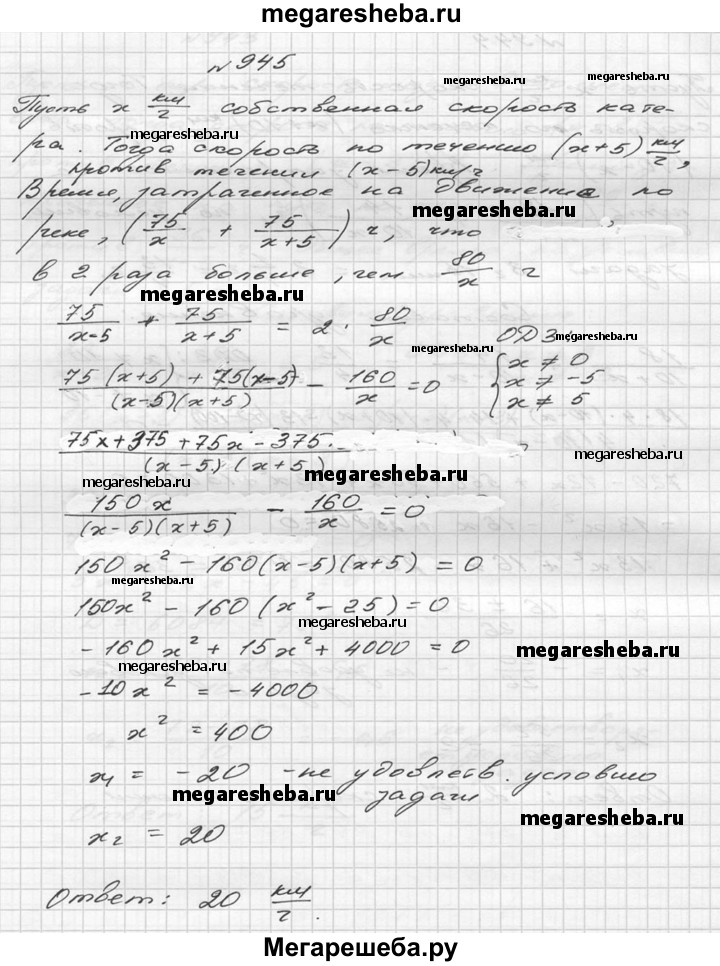 megaresheba.ru
№ 945
megaresheba.ru
Пусть x км/ч собственная скорость кате-
megaresheba.ru
ра. Тогда скорость по течению (x+5) км/ч,
против течения (x-5) км/ч
megaresheba.ru
Время, затраченное на движение по
megaresheba.ru
реке, (75/x + 75/(x+5)) ч, что
в 2 раза больше, чем 80/x ч
megaresheba.ru
75/(x-5) + 75/(x+5) = 2 · 80/x
ОДЗ:
megaresheba.ru
(75(x+5) + 75(x-5))/((x-5)(x+5)) - 160/x = 0
{x ≠ 0
x ≠ -5
x ≠ 5
(75x+375+75x-375)/((x-5)(x+5))
megaresheba.ru
megaresheba.ru
150x/((x-5)(x+5)) - 160/x = 0
megaresheba.ru
150x² - 160(x-5)(x+5) = 0
megaresheba.ru
150x² - 160(x²-25) = 0
megaresheba.ru
-160x² + 15x² + 4000 = 0
megaresheba.ru
megaresheba.ru
-10x² = -4000
x² = 400
x₁ = -20 - не удовлетв. условию
задачи
megaresheba.ru
megaresheba.ru
x₂ = 20
Ответ: 20 км/ч.
Мегарешеба.ру